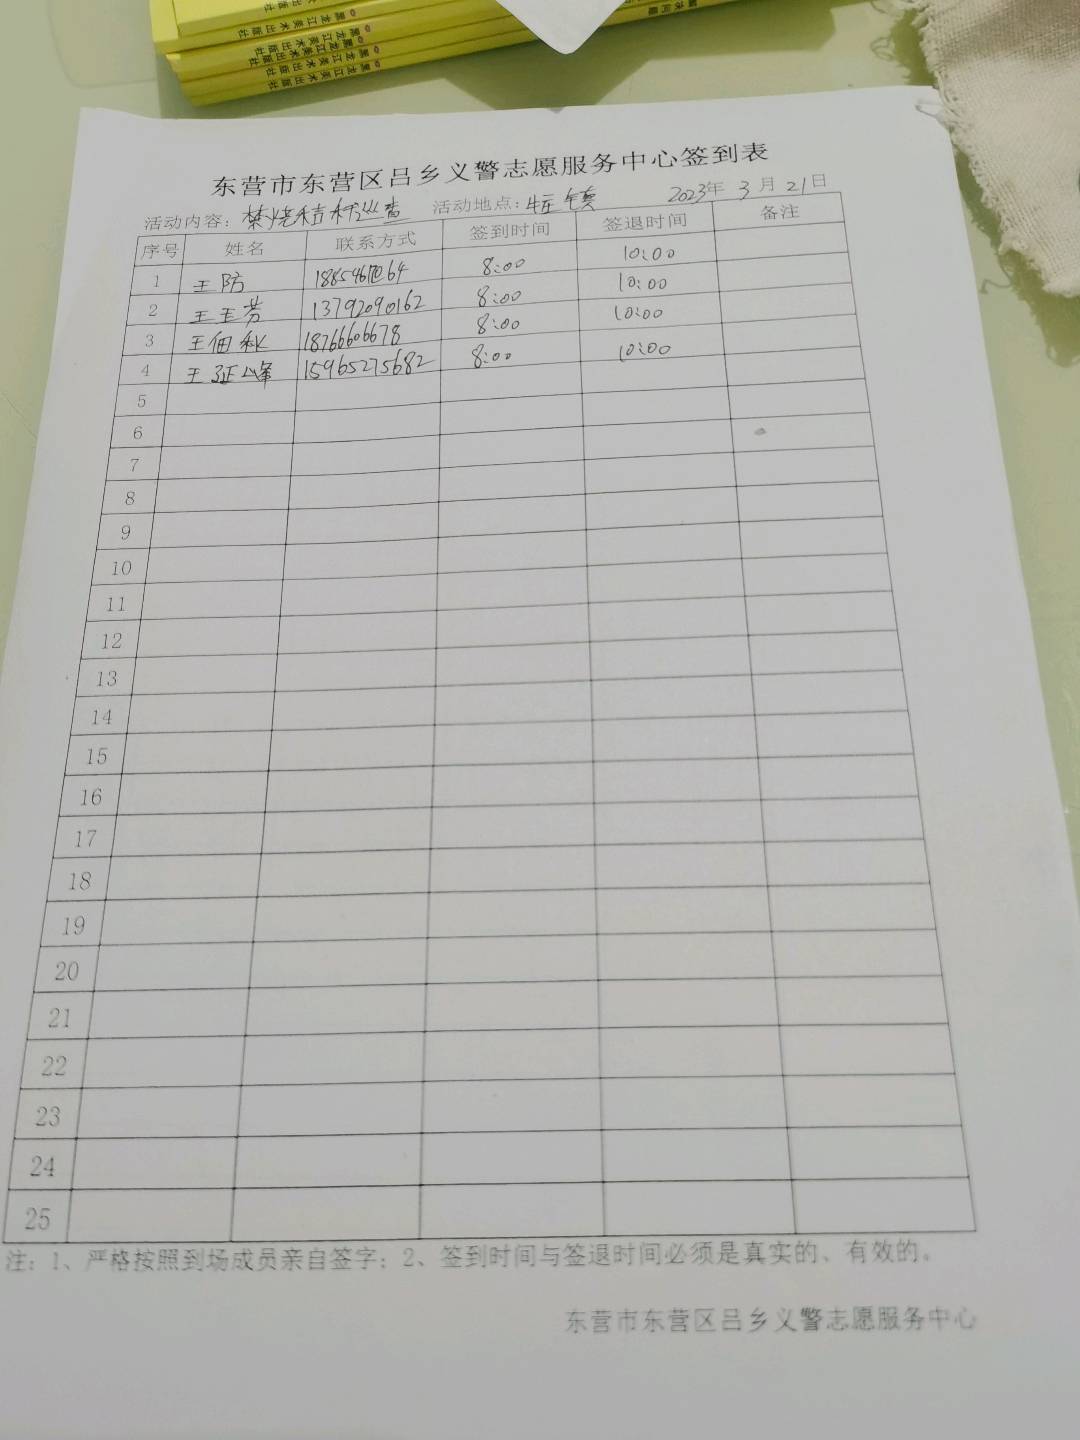 黑龙江美术出版社
黑龙江美术出版社
黑龙江美术出版社
黑龙江美术出版社
东营市东营区吕乡义警志愿服务中心签到表
活动内容：焚烧秸秆巡查 活动地点：牛庄镇 2023年 3月 21日
序号 姓名 联系方式 签到时间 签退时间 备注
1 王防 8:00 10:00
2 王玉芳 13792090162 8:00 10:00
3 王佃秋 18766606678 8:00 10:00
4 王延峰 15965275682 8:00 10:00
5
6
7
8
9
10
11
12
13
14
15
16
17
18
19
20
21
22
23
24
25
注：1、严格按照到场成员亲自签字；2、签到时间与签退时间必须是真实的、有效的。
东营市东营区吕乡义警志愿服务中心